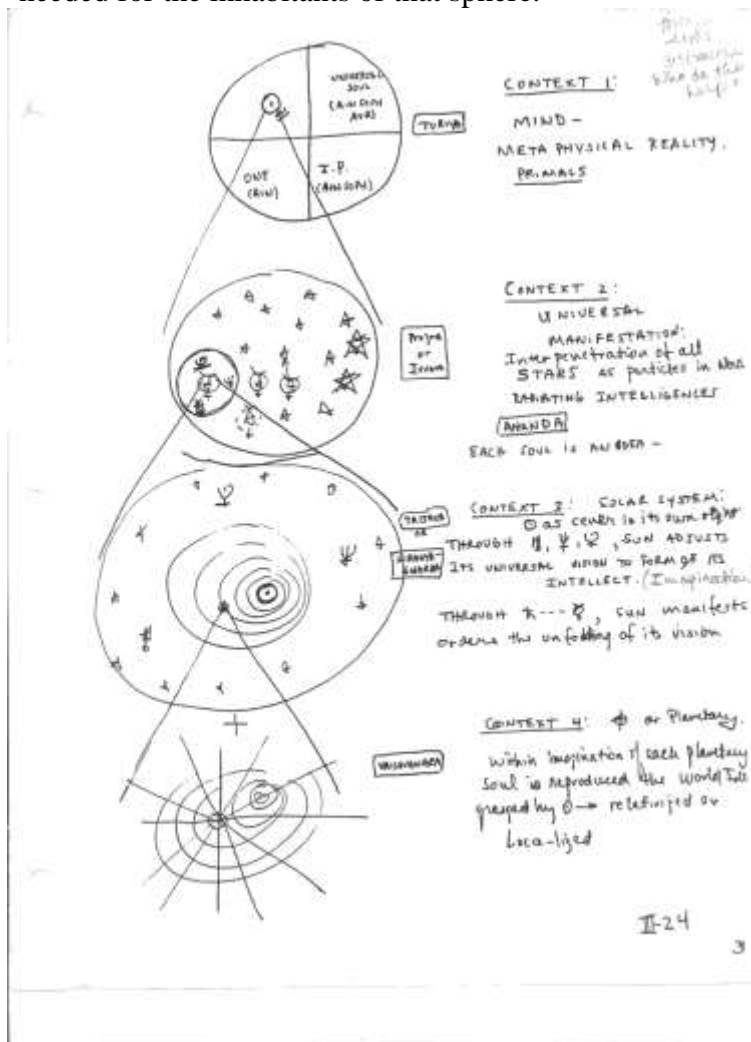 needed for the inhabitants of that sphere.
UNIVERSAL
SOUL
(AIN SOPH
AUR)
ONE
(AIN)
I.P.
(AIN SOPH)
TURIYA
CONTEXT 1:
MIND -
META PHYSICAL REALITY.
PRIMALS
Prajna
or
Isvara
CONTEXT 2:
UNIVERSAL
MANIFESTATION:
Interpenetration of all
STARS as particles in Nous
RADIATING INTELLIGENCES
ANANDA
EACH SOUL IS AN IDEA -
TAIJASA
OR
CONTEXT 3: SOLAR SYSTEM:
☉ as center in its own right
THROUGH ♅, ♆, ♇, SUN ADJUSTS
ITS UNIVERSAL VISION TO FORM OF ITS
INTELLECT. (Imagination)
THROUGH ♄ --- ☿, SUN manifests
orders the unfolding of its vision
CONTEXT 4: or Planetary.
VAISHVANARA
Within imagination of each planetary
Soul is reproduced the World Idea
grasped by ☉ → relativized or
Loca-lized
II-24
3